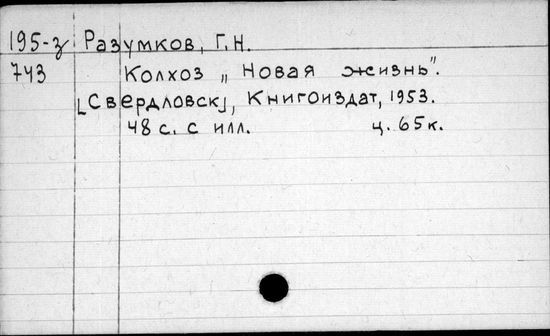 195-з Разумков, Г.Н.
743 Колхоз „Новая жизнь".
[Свердловск], Книгоиздат, 1953.
48 с. с илл. ц. 65к.